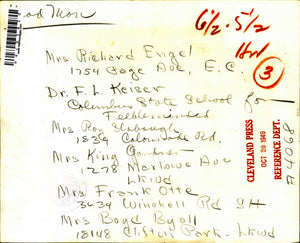 6 1/2 - 5 1/2
HW
3
Mrs Richard Engel
1754 Page Ave, E. C.
Dr. F. L. Keiser
Columbus State School for
Feebleminded
Mrs Roy Slabaugh
1839 Colonnade Rd.
Mrs King Gardner
1278 Marlowe Ave
Lkwd
Mrs Frank Otte
3634 Winchell Rd SH
Mrs Boyd Byall
18148 Clifton Park - Lkwd
CLEVELAND PRESS
OCT 20 1949
REFERENCE DEPT.
A4068